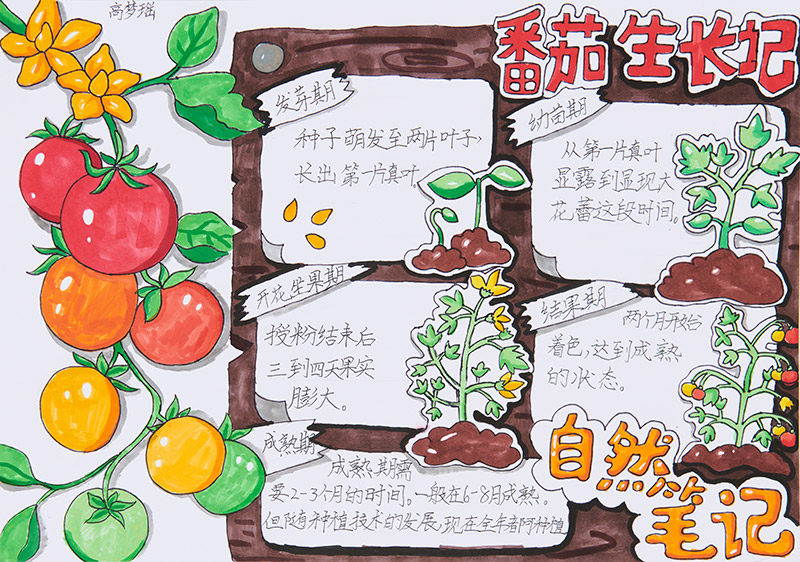 高梦瑶
番茄生长记
发芽期
种子萌发至两片叶子,
长出第一片真叶。
幼苗期
从第一片真叶
显露到显现大
花蕾这段时间。
开花坐果期
授粉结束后
三到四天果实
膨大。
结果期
两个月开始
着色,达到成熟
的状态。
成熟期
成熟期需
要2-3个月的时间。一般在6-8月成熟。
但随着种植技术的发展,现在全年都可种植
自然
笔记